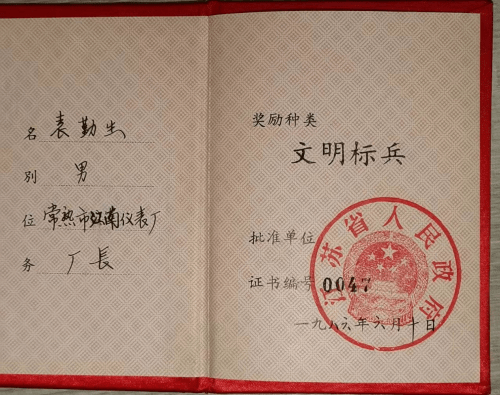 名 袁勤生
别 男
位 常熟市江南仪表厂
务 厂長
奖励种类
文明标兵
批准单位
江苏省人民政府
证书编号 0047
一九八六年六月十日